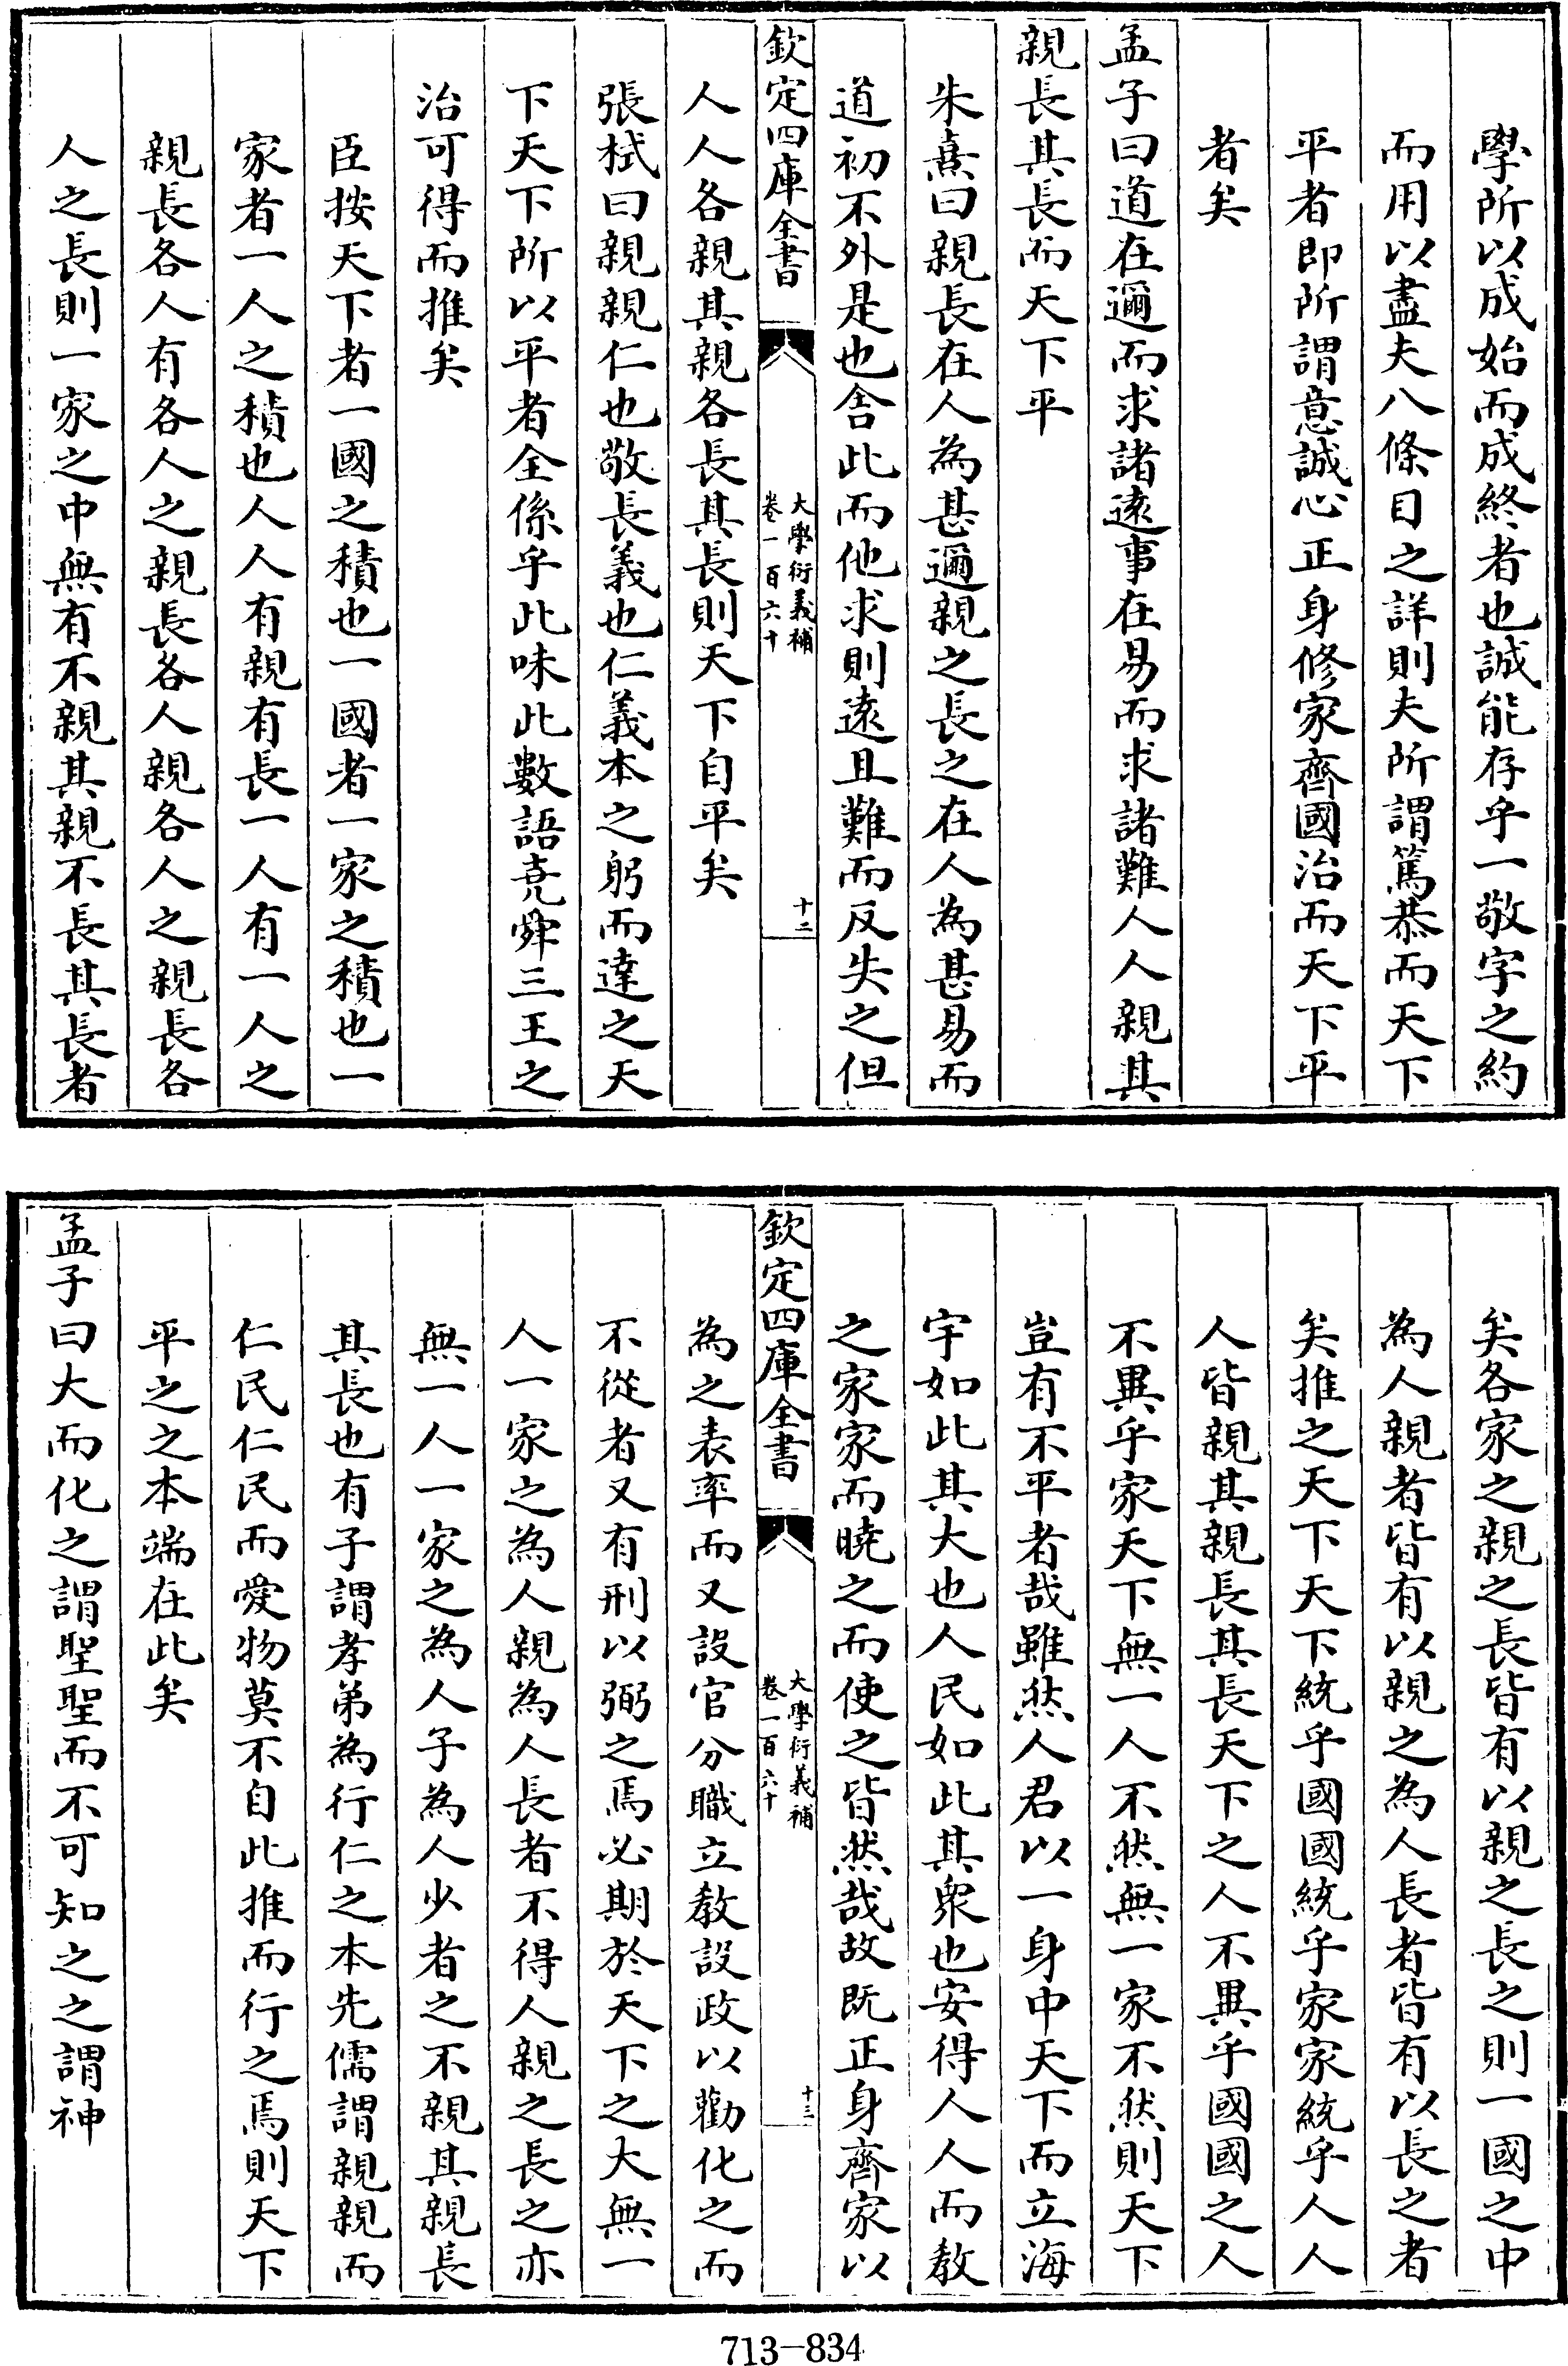 學所以成始而成終者也誠能存乎一敬字之約
而用以盡夫八條目之詳則夫所謂篤恭而天下
平者即所謂意誠心正身修家齊國治而天下平
者矣
孟子曰道在邇而求諸遠事在易而求諸難人人親其
親長其長而天下平
朱熹曰親長在人為甚邇親之長之在人為甚易而
道初不外是也舍此而他求則遠且難而反失之但
欽定四庫全書
大學衍義補
卷一百六十
十二
人人各親其親各長其長則天下自平矣
張栻曰親親仁也敬長義也仁義本之躬而達之天
下天下所以平者全係乎此味此數語堯舜三王之
治可得而推矣
臣按天下者一國之積也一國者一家之積也一
家者一人之積也人人有親有長一人有一人之
親長各人有各人之親長各人親各人之親長各
人之長則一家之中無有不親其親不長其長者
矣各家之親之長皆有以親之長之則一國之中
為人親者皆有以親之為人長者皆有以長之者
矣推之天下天下統乎國國統乎家家統乎人人
人皆親其親長其長天下之人不異乎國國之人
不異乎家天下無一人不然無一家不然則天下
豈有不平者哉雖然人君以一身中天下而立海
宇如此其大也人民如此其衆也安得人人而教
之家家而曉之而使之皆然哉故既正身齊家以
欽定四庫全書
大學衍義補
卷一百六十
十三
為之表率而又設官分職立教設政以勸化之而
不從者又有刑以弼之焉必期於天下之大無一
人一家之為人親為人長者不得人親之長之亦
無一人一家之為人子為人少者之不親其親長
其長也有子謂孝弟為行仁之本先儒謂親親而
仁民仁民而愛物莫不自此推而行之焉則天下
平之之本端在此矣
孟子曰大而化之之謂聖聖而不可知之之謂神
713-834